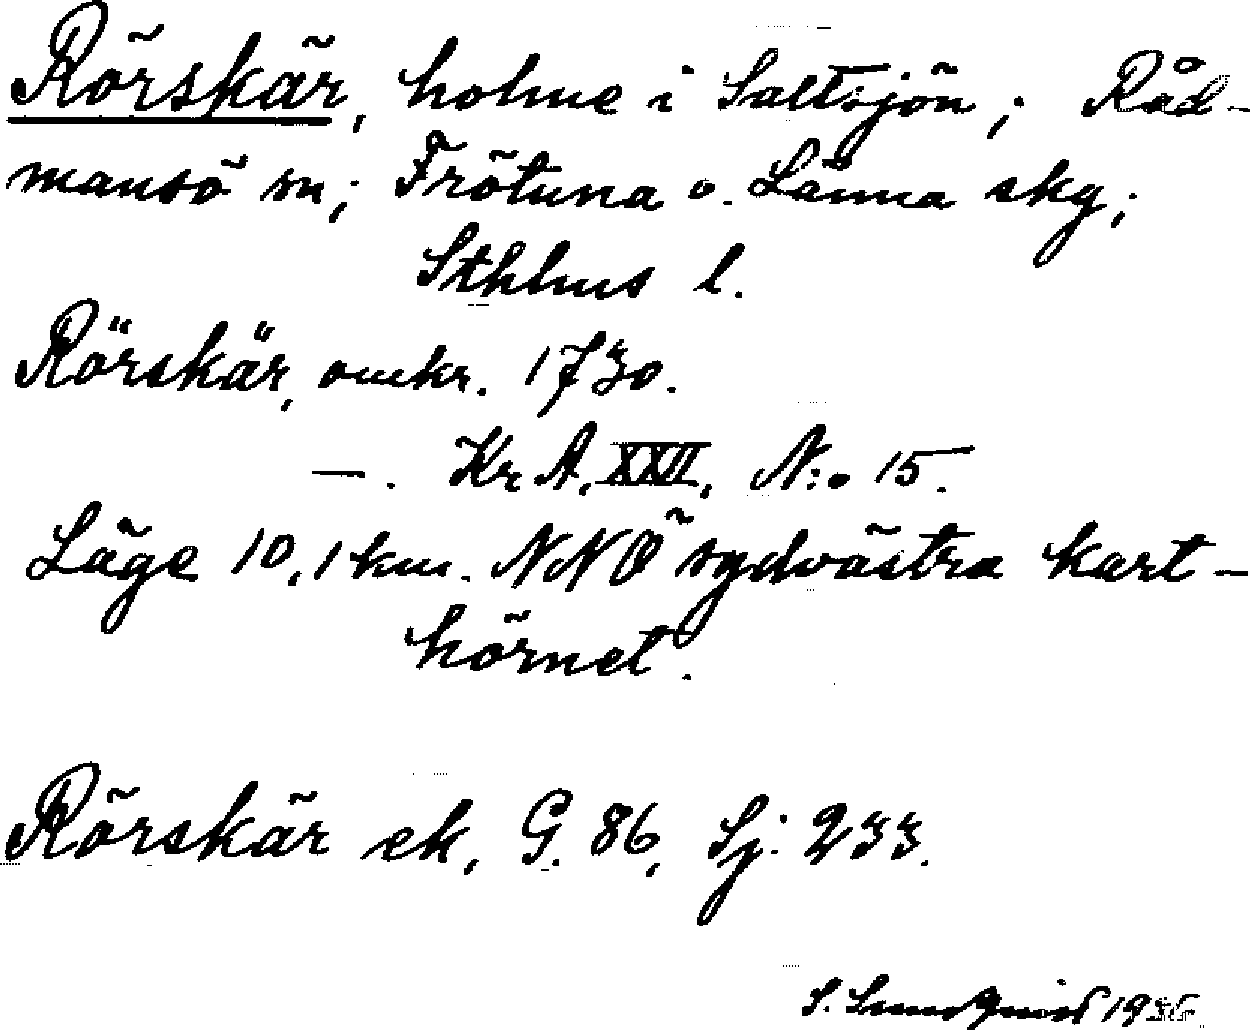 Rörskär, holme i Saltsjön; Råd-
mansö sn; Frötuna o. Länna skg;
Sthlms l.
Rörskär, omkr. 1730.
—. Kr A. XXII, N:o 15.
Läge 10,1 km. NNÖ sydvästra kart-
hörnet.
Rörskär ek, G. 86, Sj: 233.
S. Lundquist 1936